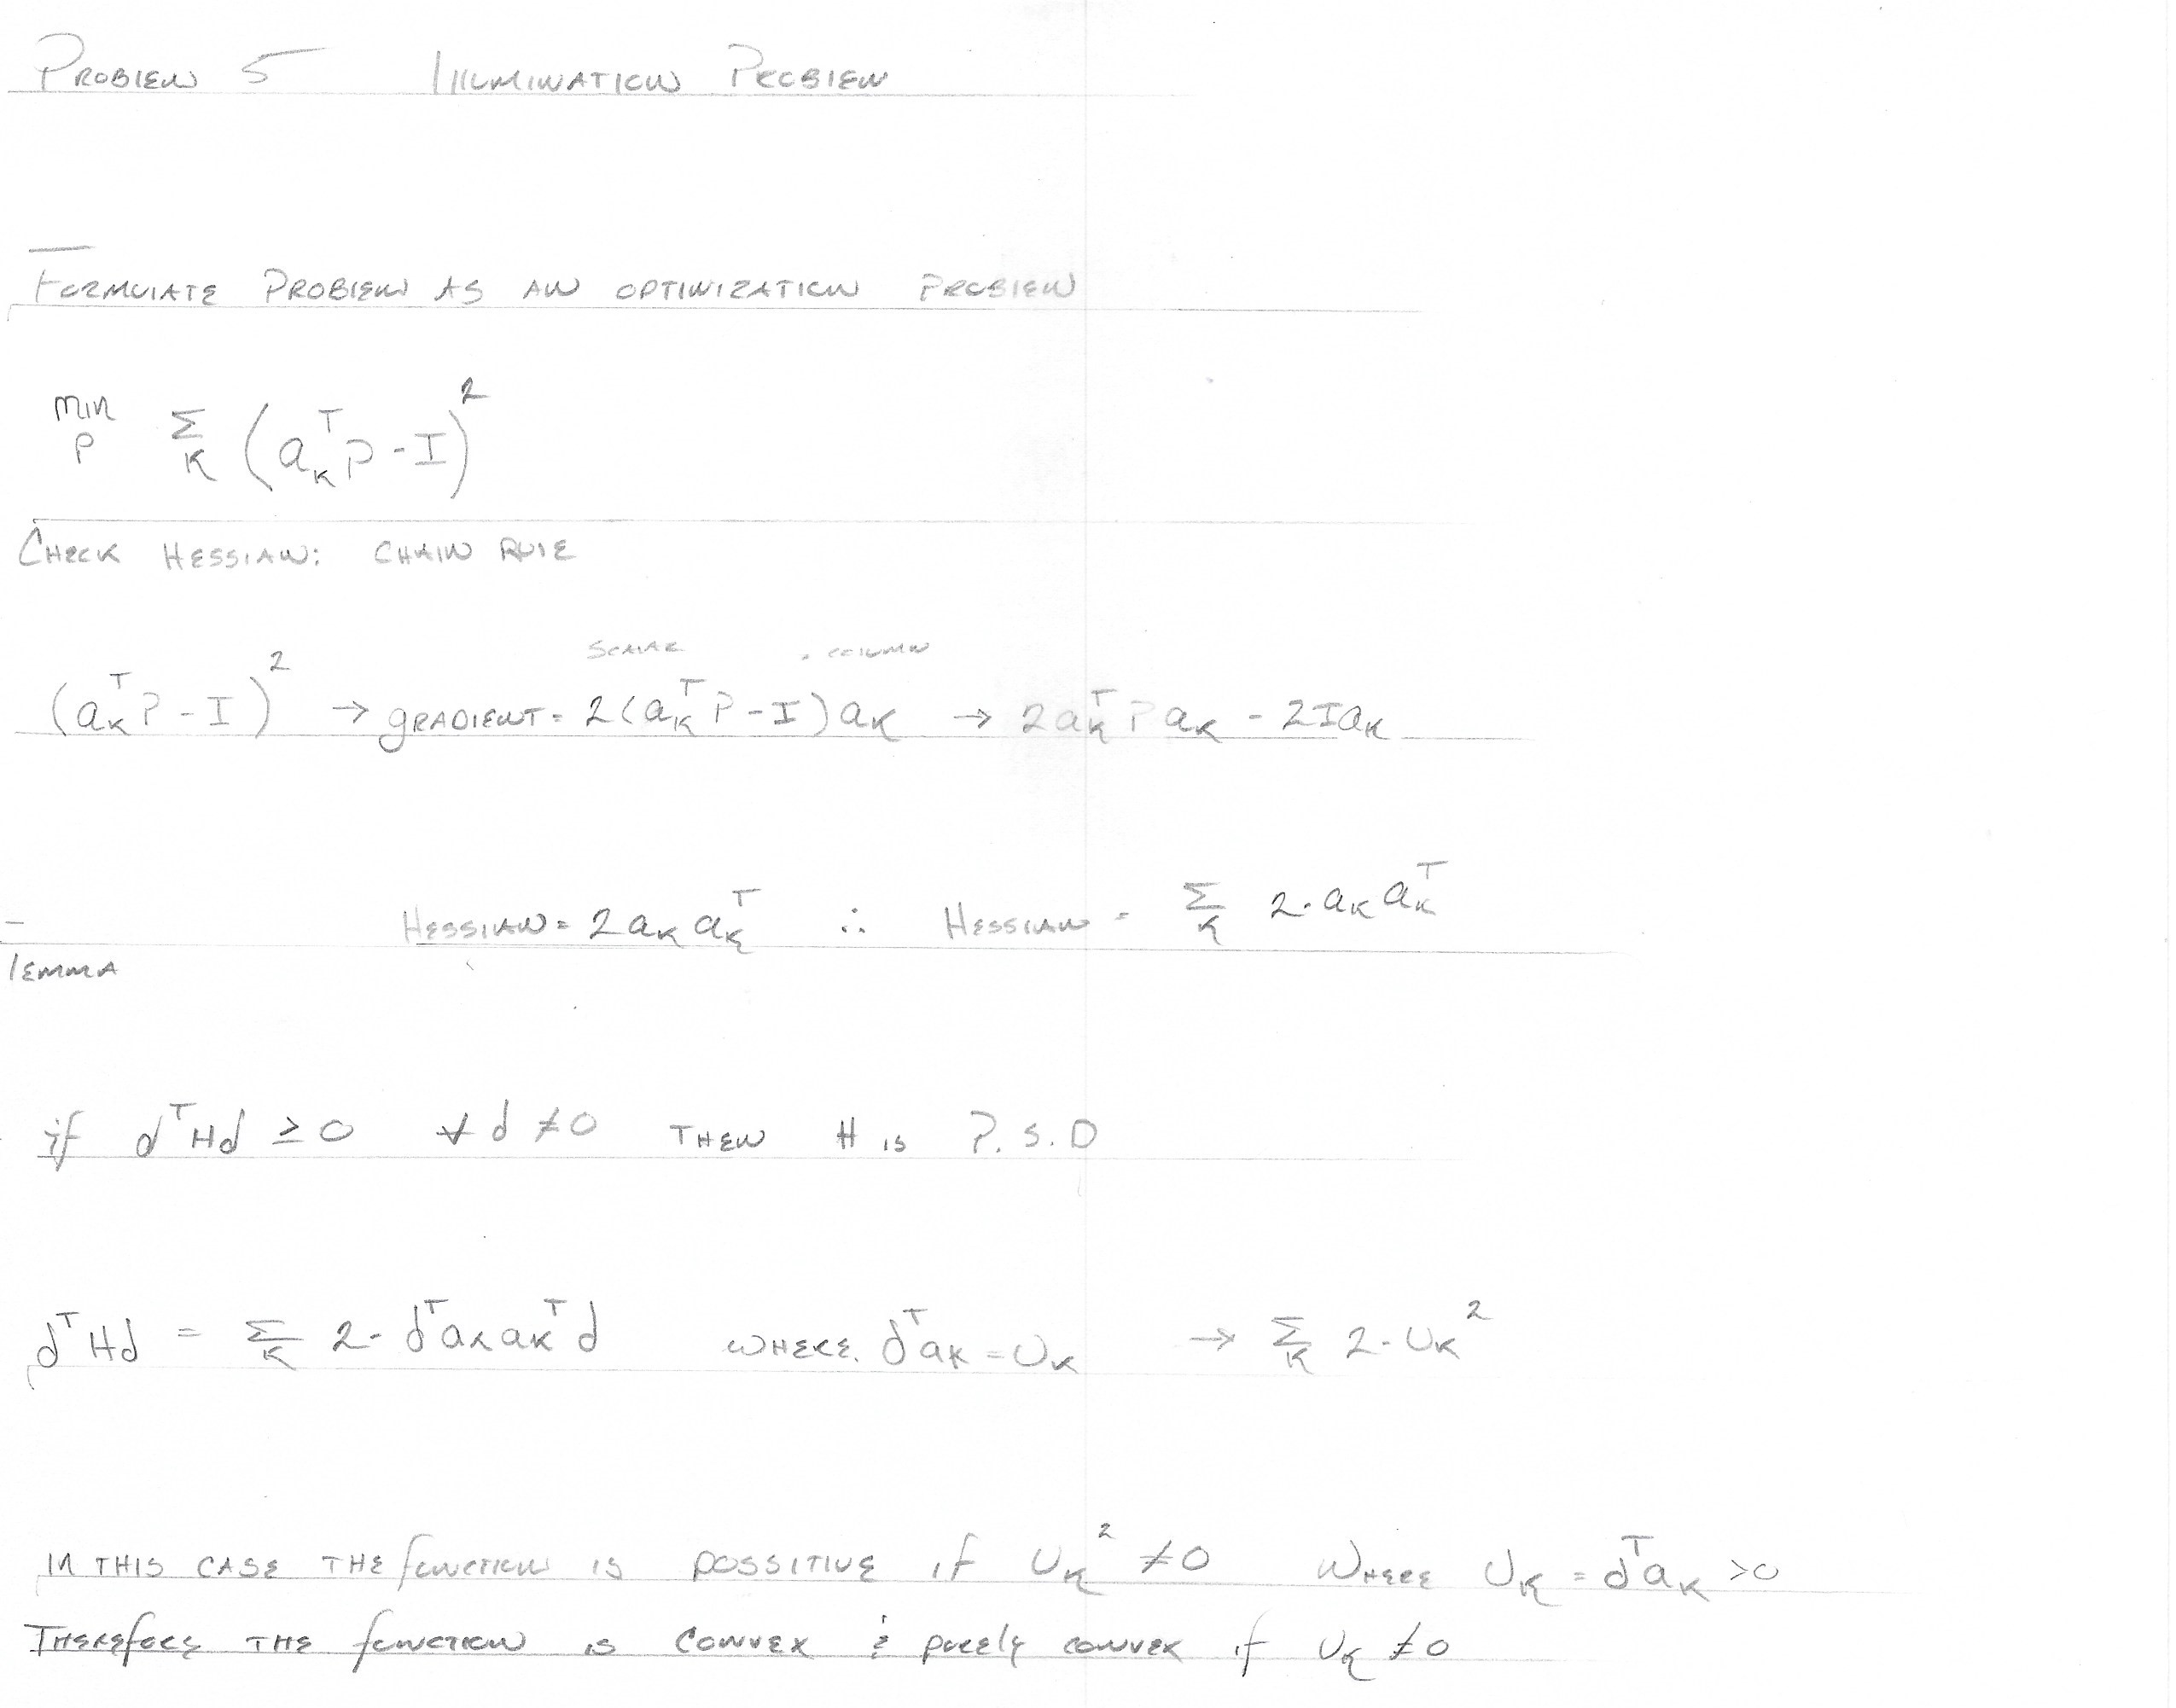 PROBLEM 5 ILLUMINATION PROBLEM
FORMULATE PROBLEM AS AN OPTIMIZATION PROBLEM
min_P Σ_K (a_K^T P - I)^2
CHECK HESSIAN: CHAIN RULE
SCALAR . COLUMN
(a_K^T P - I)^2 → gRADIENT = 2(a_K^T P - I) a_K → 2 a_K^T P a_K - 2I a_K
HESSIAN = 2 a_K a_K^T ∴ HESSIAN = Σ_K 2·a_K a_K^T
LEMMA
if d^T H d ≥ 0 ∀ d ≠ 0 THEN H is P.S.D
d^T H d = Σ_K 2·d^T a_K a_K^T d WHERE. d^T a_K = U_K → Σ_K 2·U_K^2
IN THIS CASE THE function is possitive if U_K^2 ≠ 0 WHERE U_K = d^T a_K > 0
THEREfore THE function is convex & purely convex if U_K ≠ 0